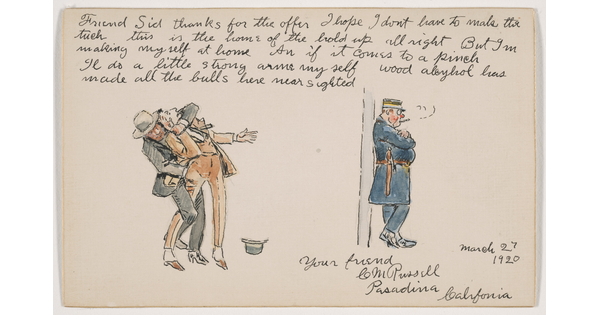 Friend Sid thanks for the offer I hope I dont have to make this
tuch this is the home of the hold up all right But Im
making myself at home An if it comes to a pinch
Il do a little strong arme my self wood alcyhol has
made all the bulls here near sighted
Your friend
CM Russell
Pasadina
Calrfonia
march 27
1920